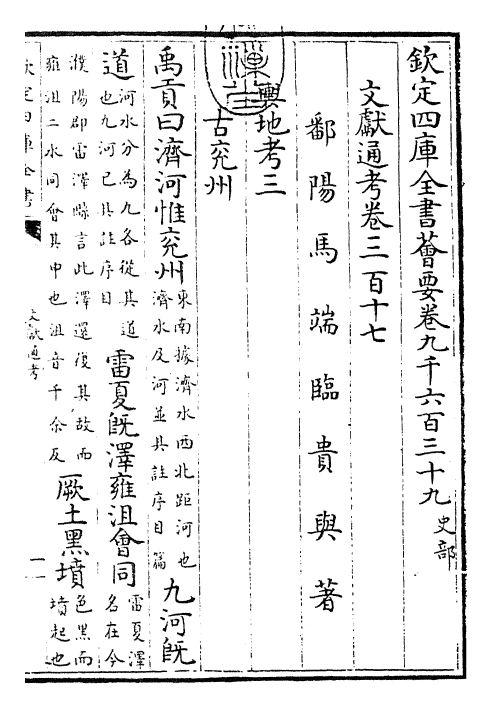 欽定四庫全書薈要卷九千六百三十九 史部
文獻通考卷三百十七
鄱陽馬端臨貴與著
輿地考三
古兖州
禹貢曰濟河惟兖州 東南據濟水西北距河也濟水及河並具註序目篇 九河旣
道 河水分為九各從其道也九河已具註序目 雷夏旣澤雍沮會同 雷夏澤名在今
濮陽郡雷澤縣言此澤還復其故而雍沮二水同會其中也沮音千余反 厥土黑墳 色黑而墳起也
欽定四庫全書
文獻通考
一